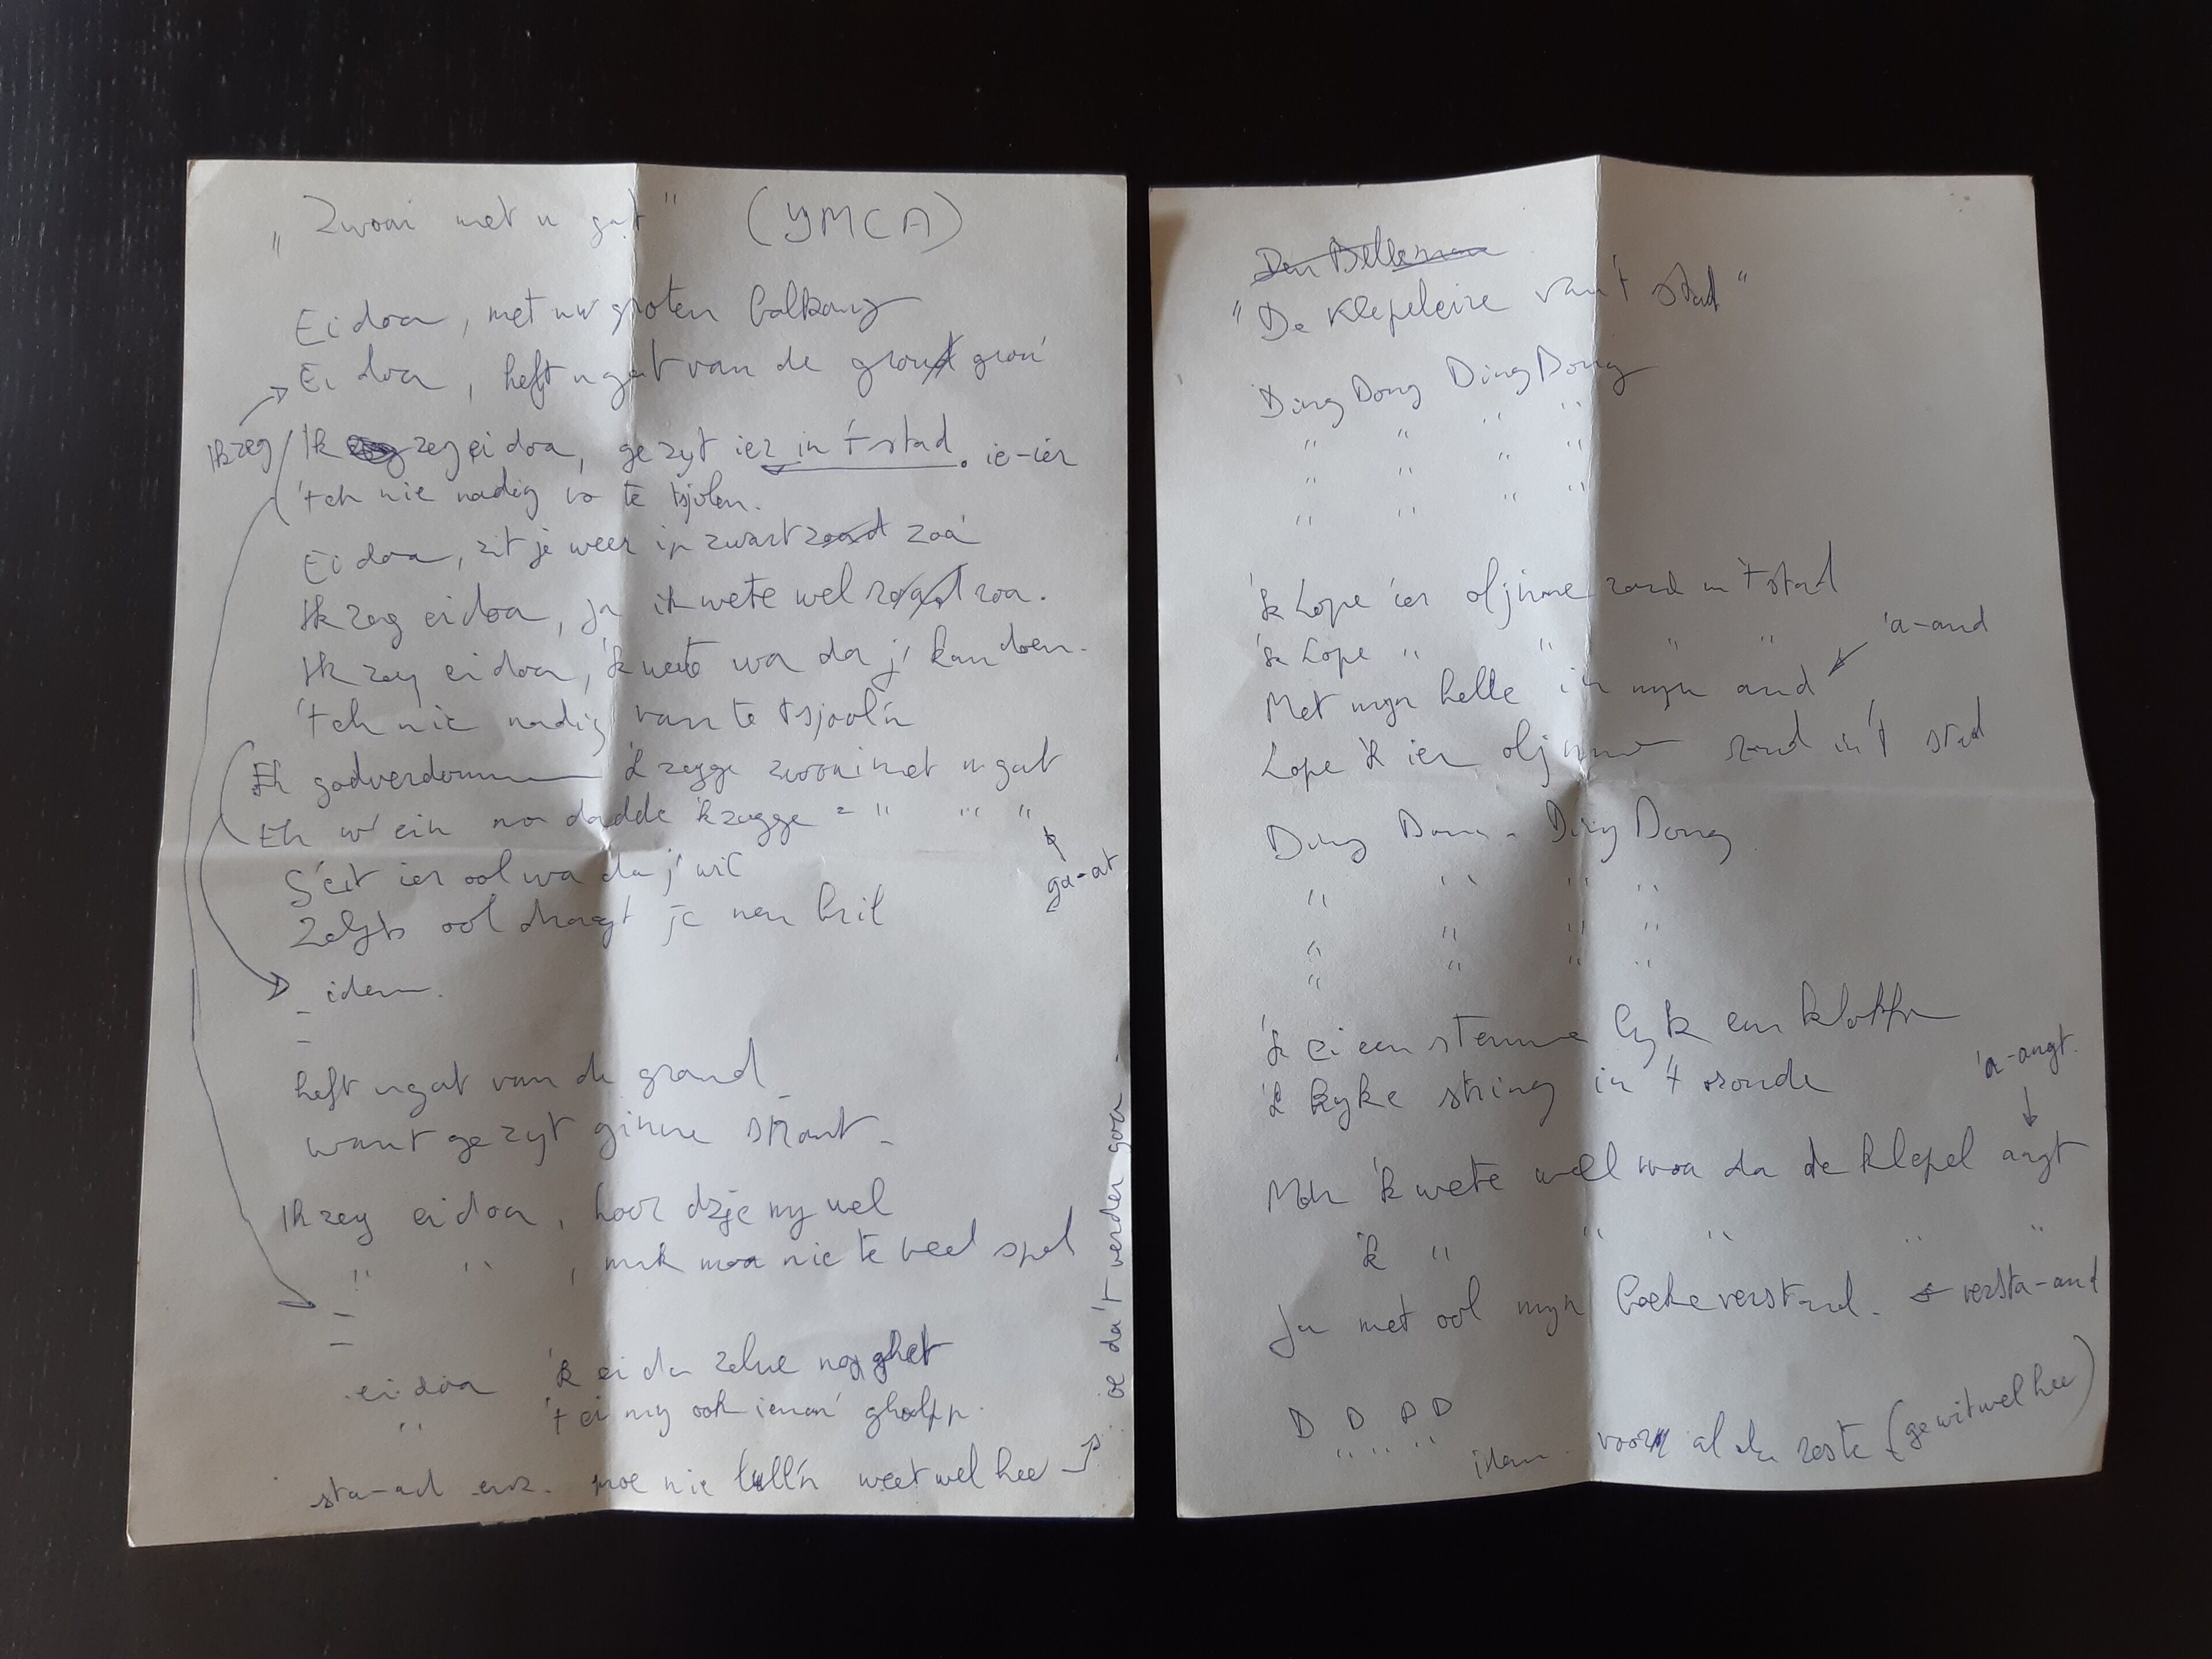 "Zwooi met u gat" (YMCA)
Ei doa, met uw groten balkong
Ei doa, heft u gat van de grond groń
Ik zeg
Ik zeg ei doa, ge zyt ier in 't stad. ie-ier
't eh nie nodig vo te tsjolen.
Ei doa, zit je weer in zwart zaad zoá
Ik zeg ei doa, ja ik wete wel raad roa.
Ik zeg ei doa, 'k wete wa da j' kan doen.
't eh nie nodig van te tsjool'n
Eh godverdomme 'k zegge zwooi met u gat
Eh w' ein no dadde 'k zegge " " " "
ga-at
G'eit ier ool wa da j' wil
Zelfs ool draagt je nen bril
- idem.
-
-
heft u gat van de grond
want ge zyt ginne stront -
Ik zeg ei doa, hoor dzje my wel
" " , mak moa nie te veel spel
-
-
ei doa 'k ei da zelve nog ghet
" 't ei my ook ieman' gholpn.
sta-ad enz. moe nie lull'n weet wel hee
oe da't verder goa
Den Belleman
"De Klepeleire van 't stad"
Ding Dong Ding Dong
" " " "
" " " "
" " " "
'k Lope ier oljinne rond in 't stad
'k Lope " " " "
'a-and
Met myn belle in myn and
Lope 'k ier oljinne rond in 't stad
Ding Dong - Ding Dong
" " " "
" " " "
" " " "
'k ei een stemme lyk een klokke
'k kyke string in 't ronde
'a-angt.
Moh 'k wete well woa da de klepel angt
'k " " " " "
Ja met ool myn boekeverstand. versta-and
D D D D
" " "
idem voor al de reste (ge wit wel hee)